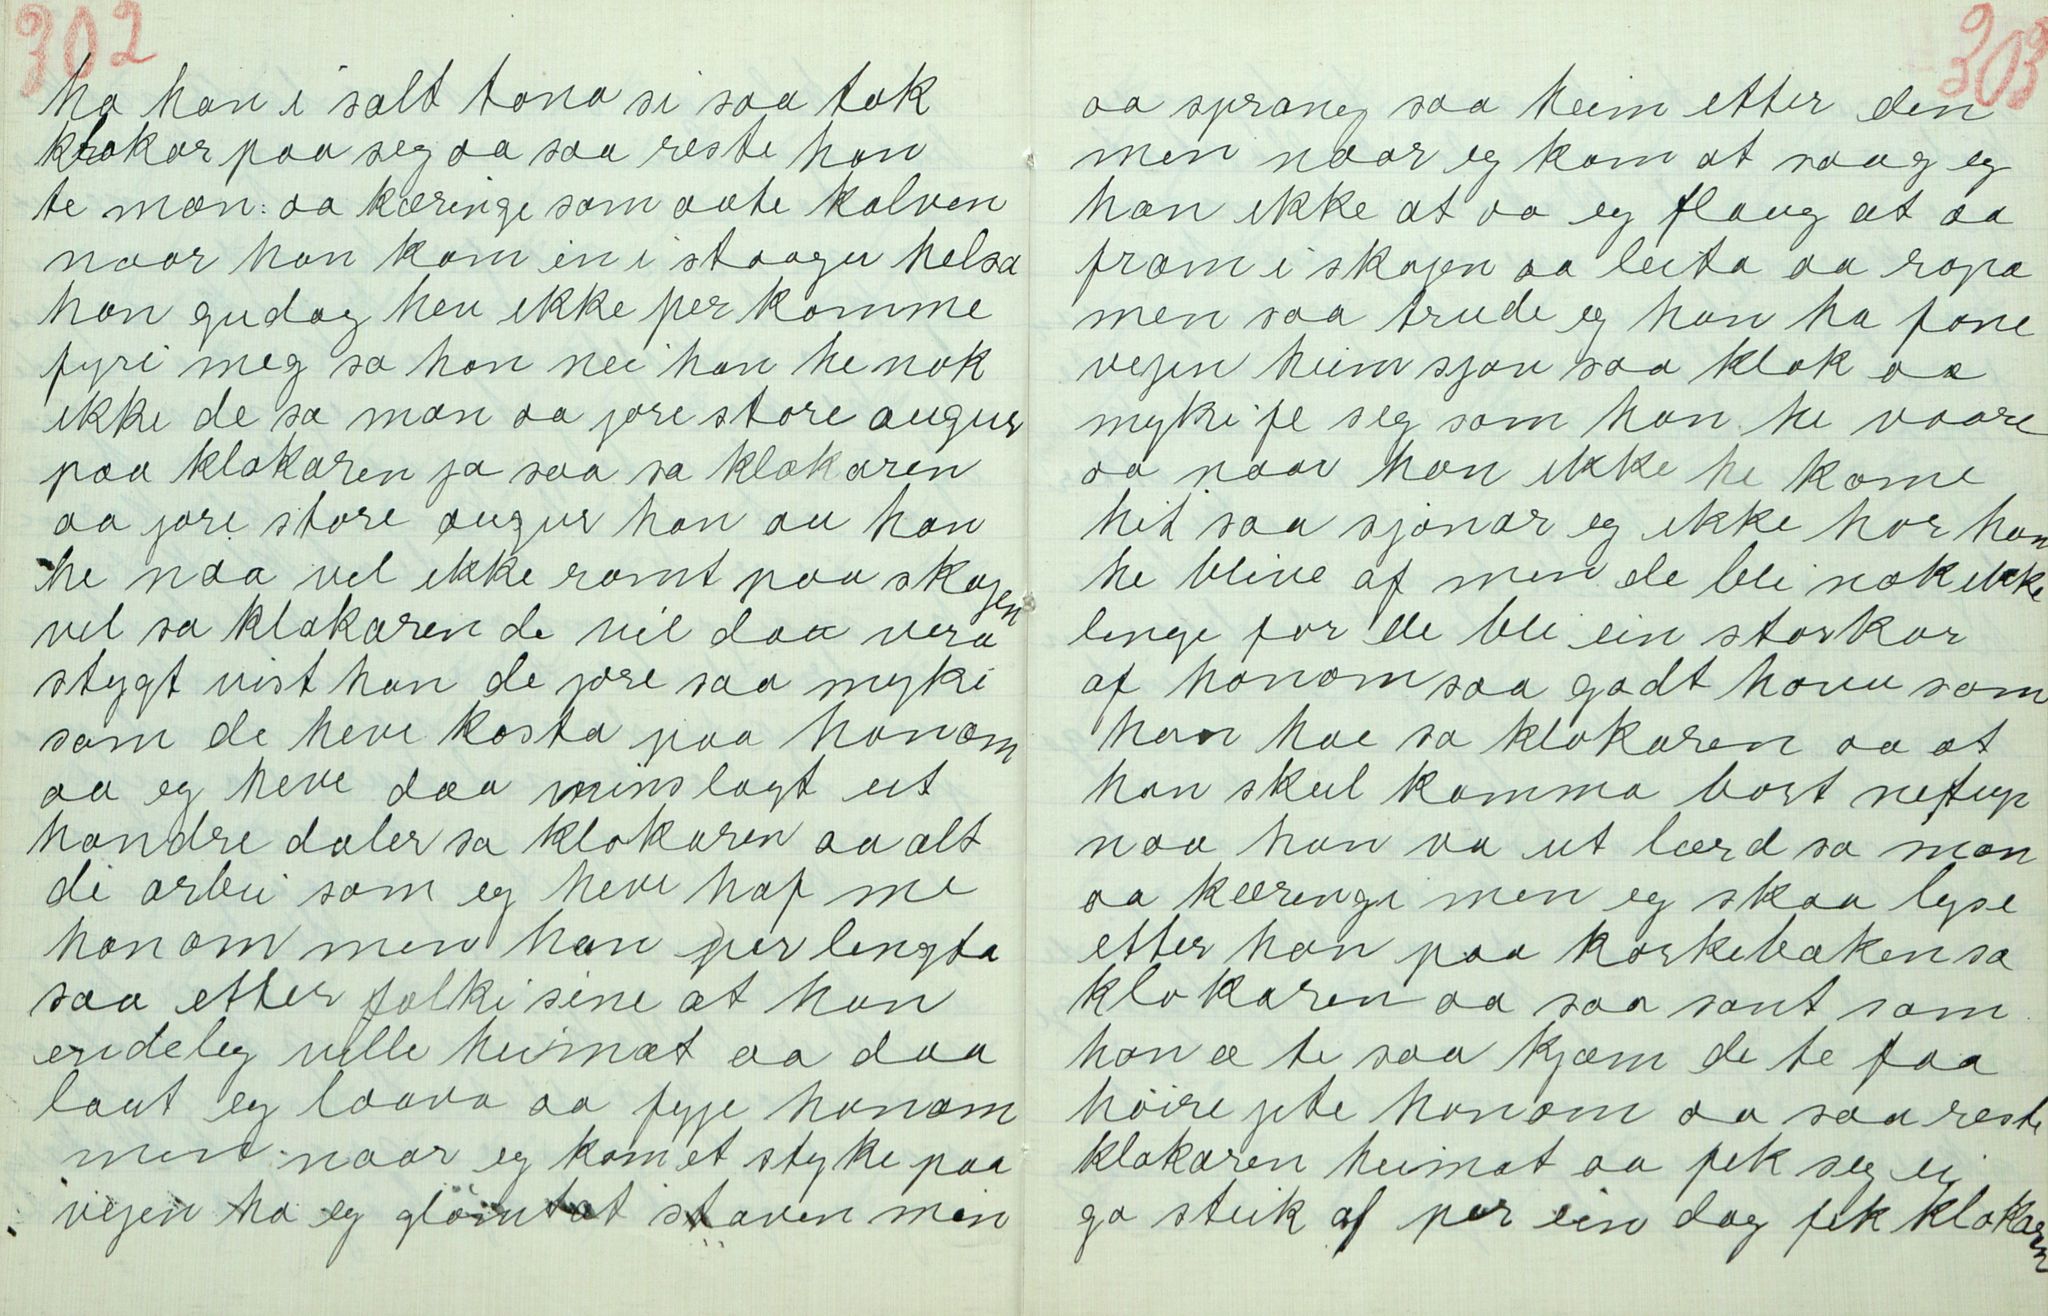 302
ha han i salt tona si saa tok
klokar paa seg aa saa reste han
te man: aa kæringe som aate kalven
naar han kom in i staagu helsa
han gudag heu ikke per komme
fyri meg sa han nei han he nok
ikke de sa man aa jore store augur
paa klokaren ja saa sa klokaren
aa jore store augur han au han
he naa vel ikke ramt paa skogen
vel sa klokaren de vil daa vera
stygt vist han de jore saa myki
som de heve kosta paa honom
aa eg heve daa mins lagt ut
hondre daler sa klokaren aa alt
di arbei som eg heve haf me
honom men han per lengta
saa etter folki sine at han
endeleg ville heimat aa daa
laut eg laava aa fyje honom
men naar eg kom et styke paa
vejen ha eg glömt at staven min
303
aa sprang saa heim etter den
men naar eg kom at saag eg
han ikke at aa eg flaug at aa
fram i skojen aa leita aa ropa
men saa trude eg han ha fone
vejen heim sjøu saa klok aa
myki fe seg som han he vaare
aa naar han ikke he kome
hit saa sjønar eg ikke hor han
he blive af men de bli nok ikke
lenge for de bli ein storkar
af honom saa godt houu som
han hae sa klokaren aa at
han skul komma bort netup
naa han va ut lærd sa man
aa kæringi men eg skaa lyse
etter han paa korkebaken sa
klokaren aa saa sant som
han æ te saa kjæm de te faa
höire jete honom aa saa reste
klokaren heimat aa fek seg ei
go steik af per ein dag fek klokaren